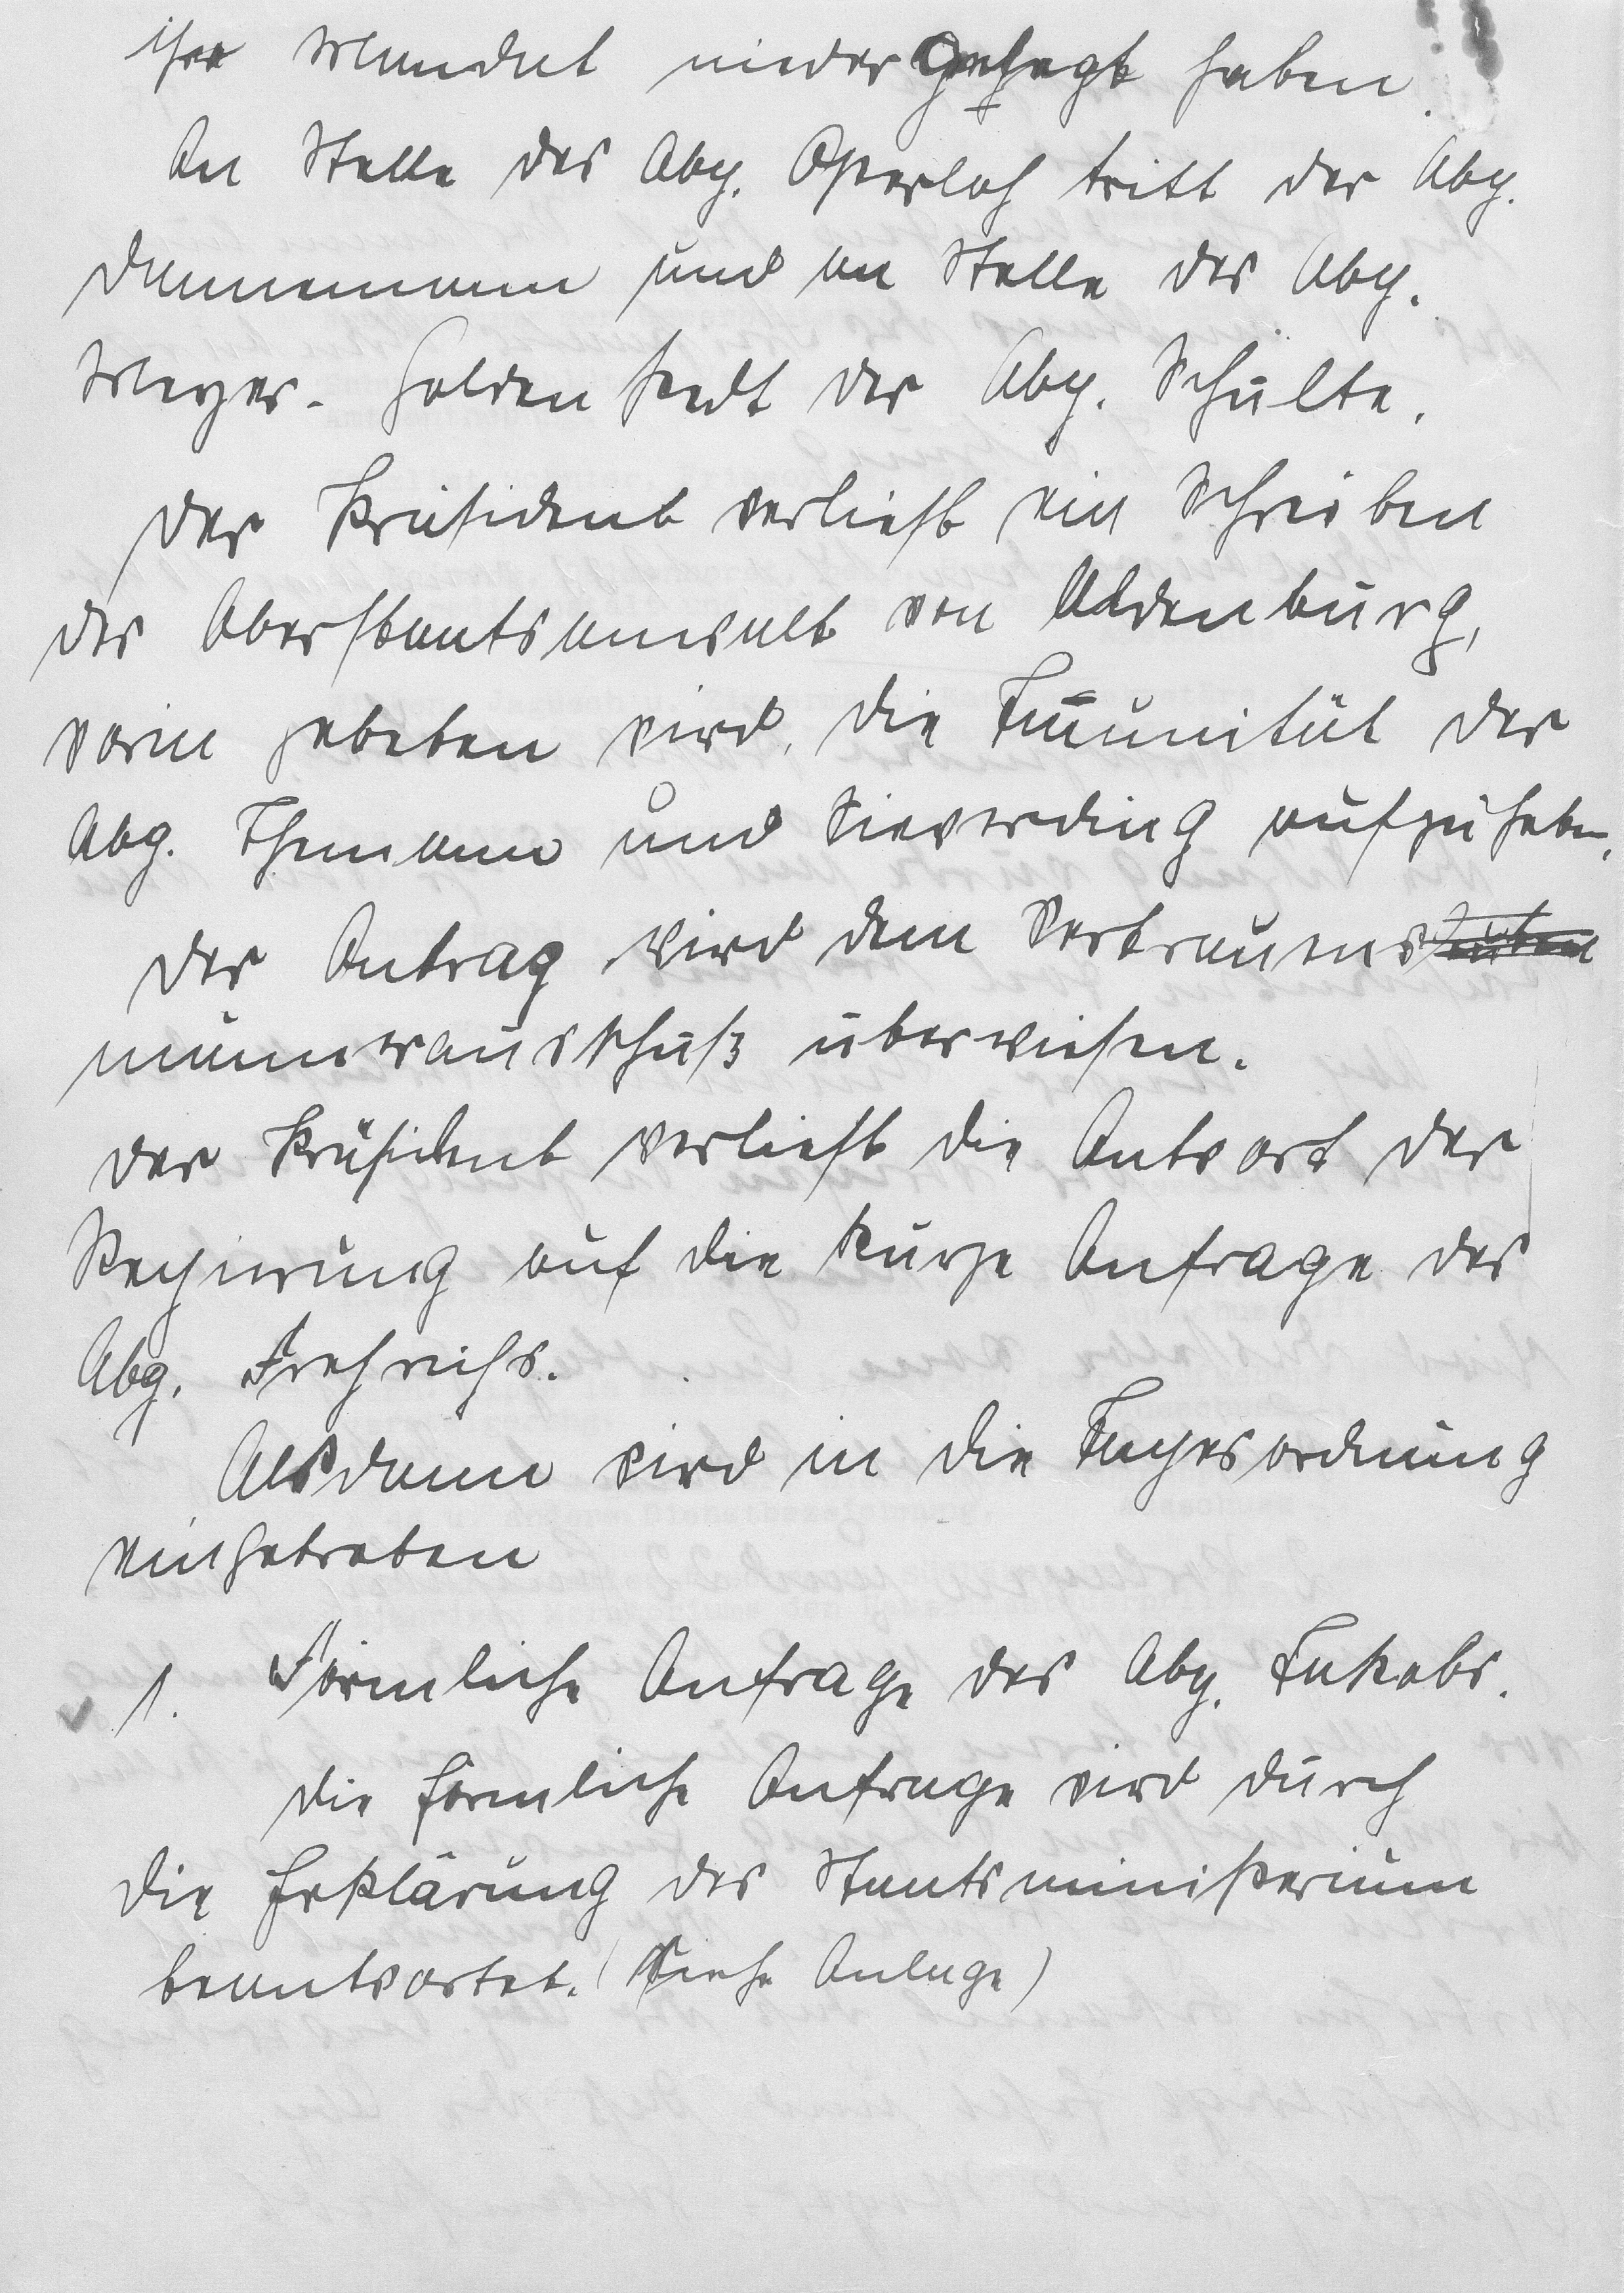 ihr Mandat niedergelegt haben.
An Stelle des Abg. Osterloh tritt der Abg.
Dannemann und an Stelle des Abg.
Meyer-Holdenstedt der Abg. Schulte.
Der Präsident verliest ein Schreiben
des Oberstaatsanwalt von Oldenburg,
worin gebeten wird, die Im̅unität der
Abg. Themann und Sieverding aufzuheben.
Der Antrag wird dem Vertrauens
männerausschuß überwiesen.
Der Präsident verliest die Antwort der
Regierung auf die kurze Anfrage des
Abg. Frerichs.
Alsdann wird in die Tagesordnung
eingetreten
1. Förmliche Anfrage des Abg. Jakobs.
Die förmliche Anfrage wird durch
die Erklärung des Staatsministerium
beantwortet. (Siehe Anlage)